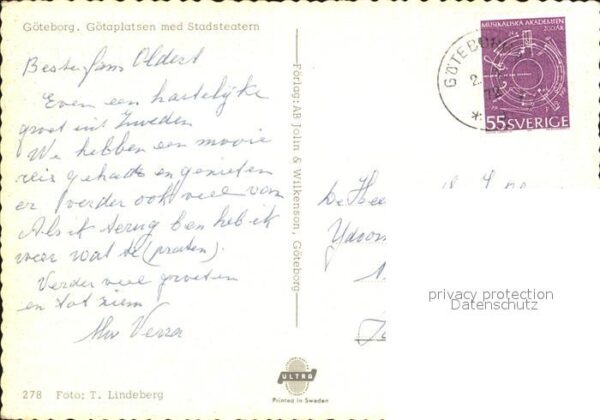 Göteborg. Götaplatsen med Stadsteatern
Beste fam Oldest
Even een hartelijke
groet uit Zweden
We hebben een mooie
reis gehad en genieten
er verder ook veel van
Als ik terug ben heb ik
weer wat te (praten).
Verder veel groeten
en tot ziens
278 Foto: T. Lindeberg
Förlag: AB Jolin & Wilkenson, Göteborg
ULTRA
Printed in Sweden
MUSIKALISKA AKADEMIEN
200 ÅR
55 SVERIGE
GÖTEBORG
De Hee
privacy protection
Datenschutz